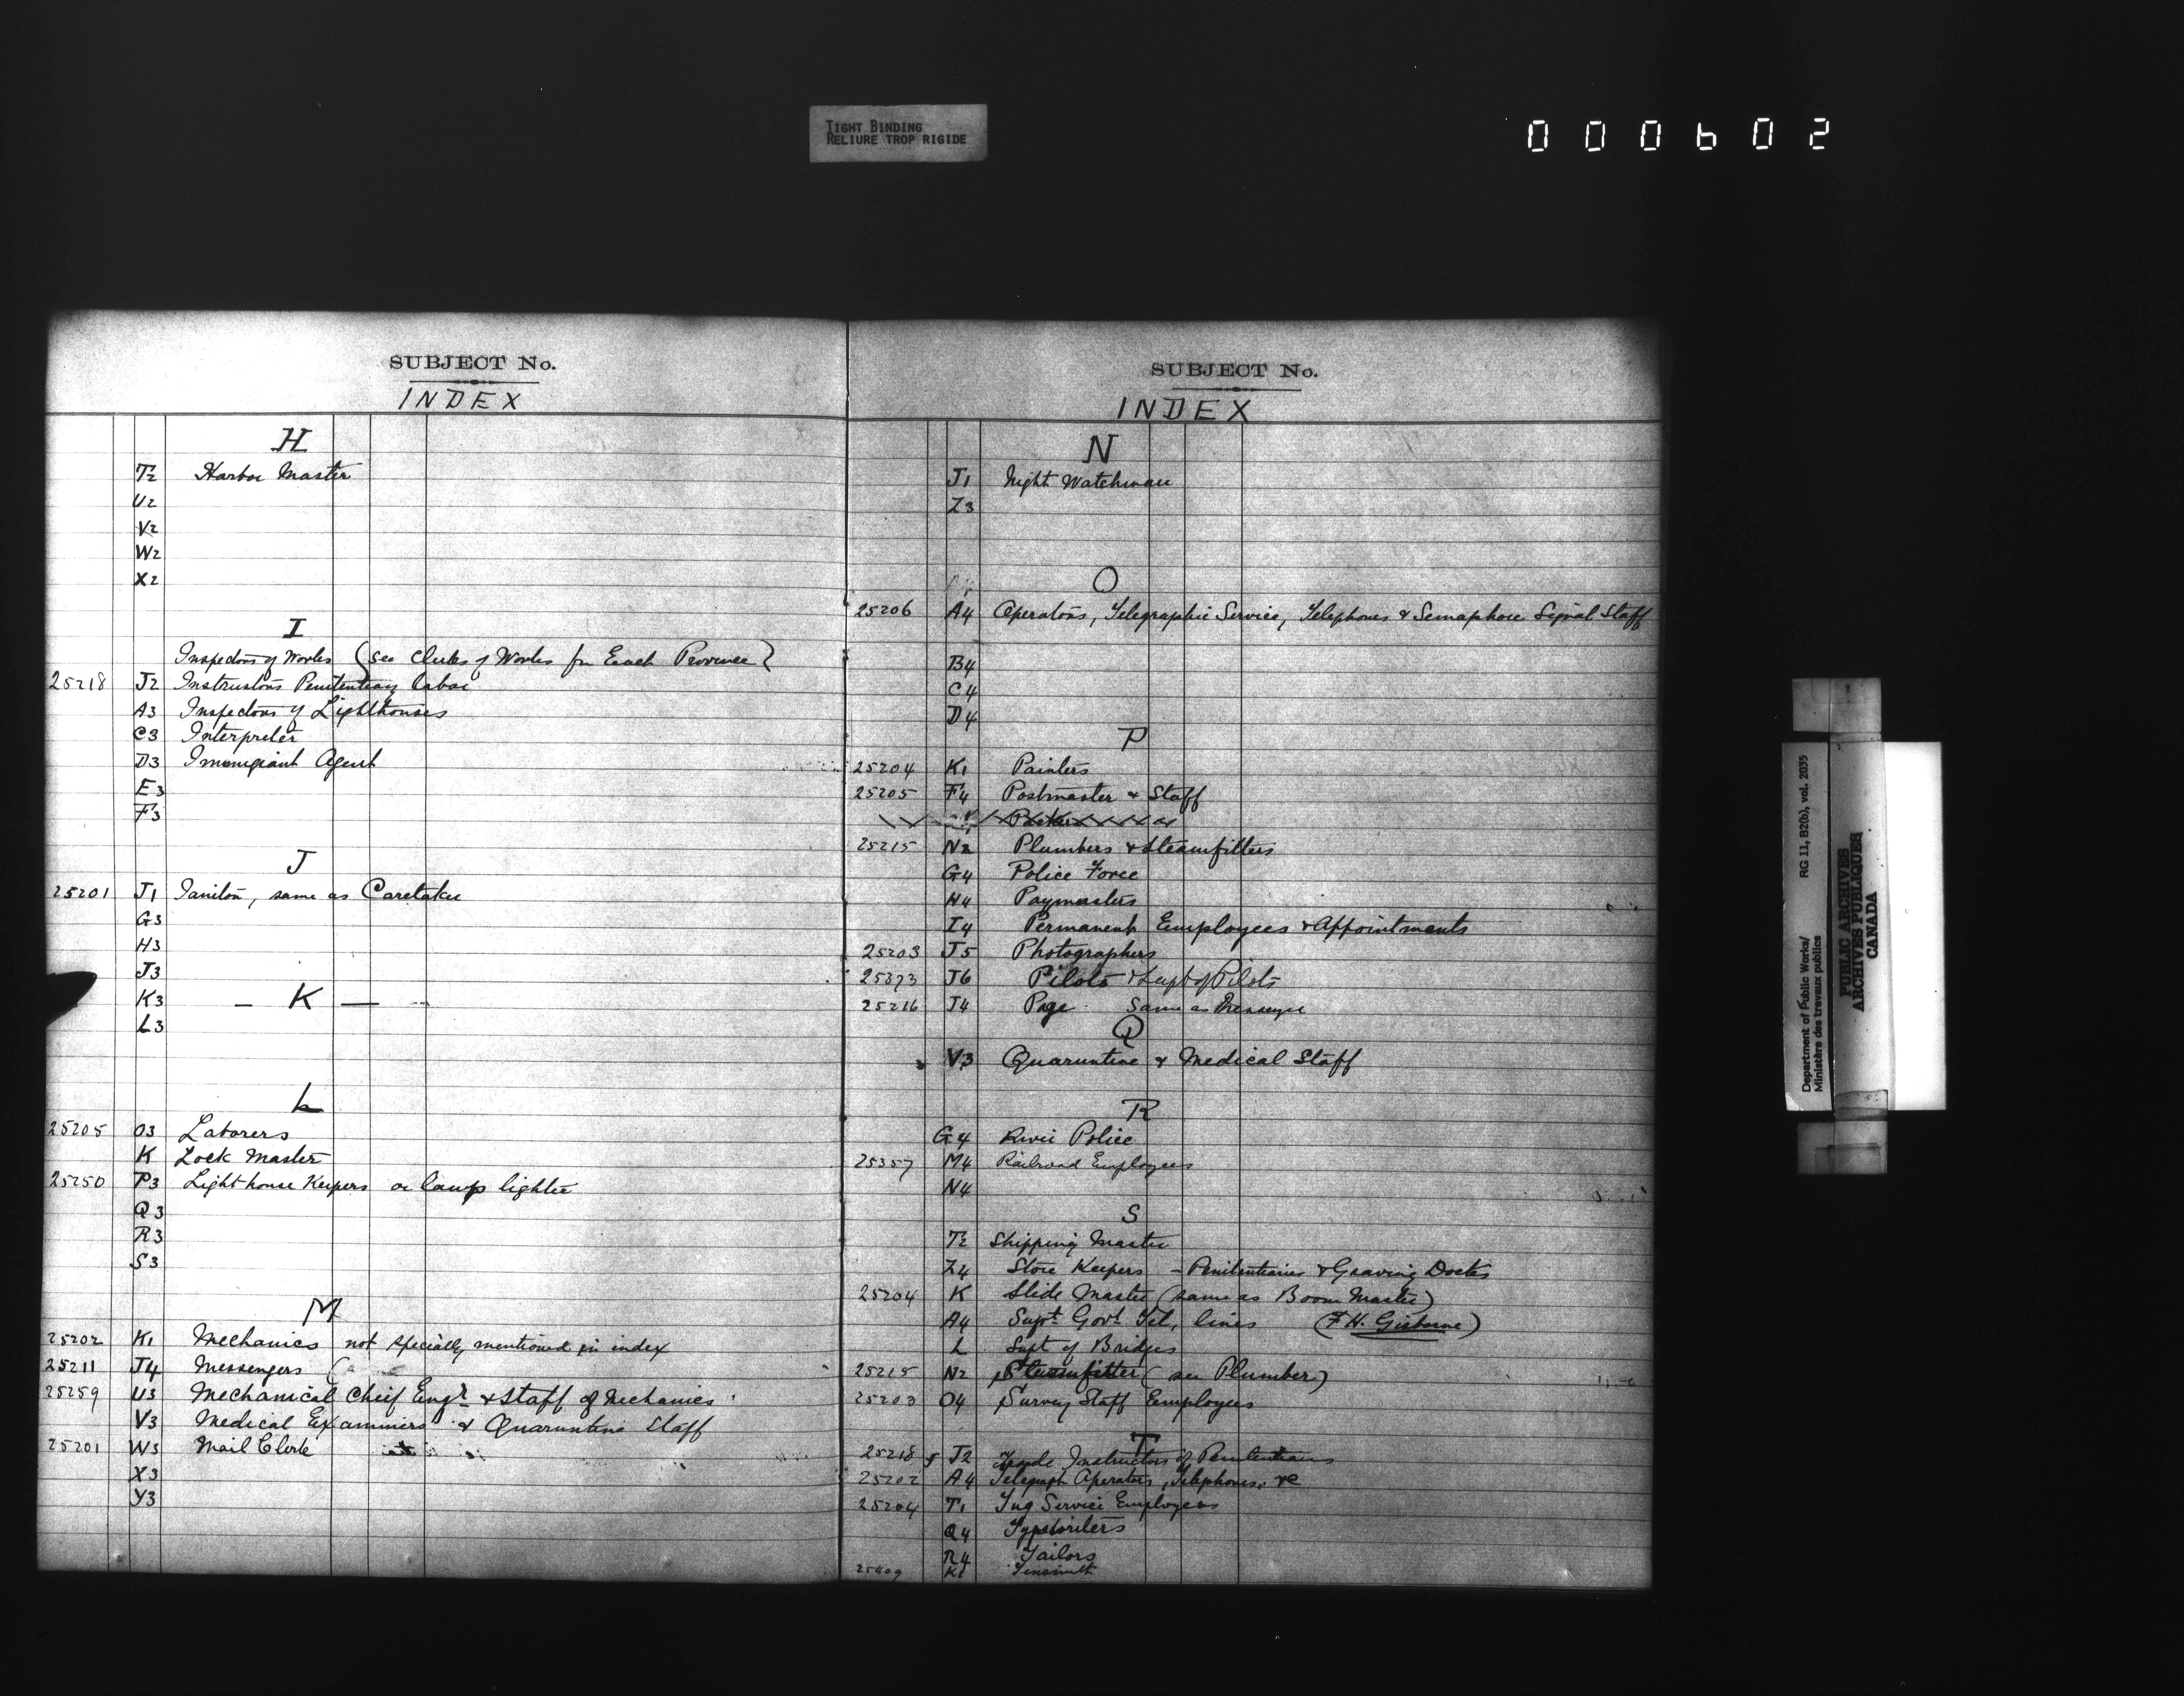 TIGHT BINDING
RELIURE TROP RIGIDE
000602
SUBJECT No.
INDEX
H
T2 Harbor Master
U2
V2
W2
X2
I
Inspectors of Works (see Clerks of Works for Each Province)
25218 J2 Instructors Penitentiary labor
A3 Inspectors of Lighthouses
C3 Interpreter
D3 Immigrant Agent
E3
F3
J
25201 J1 Janitor, same as Caretaker
G3
H3
J3
K3 — K —
L3
L
25205 O3 Laborers
K Lock Master
25250 P3 Light house Keepers or lamp lighter
Q3
R3
S3
M
25202 K1 Mechanics not specially mentioned in index
25211 J4 Messengers
25259 U3 Mechanical Cheif Engr & Staff of Mechanics
V3 Medical Examiners & Quaruntine Staff
25201 W3 Mail Clerk
X3
Y3
SUBJECT No.
INDEX
N
J1 Night Watchman
Z3
O
25206 A4 Operators, Telegraphic Service, Telephones & Semaphore Signal Staff
B4
C4
D4
P
25204 K1 Painters
25205 F4 Postmaster & Staff
25215 N2 Plumbers & Steamfitters
G4 Police Force
H4 Paymasters
I4 Permanent Employees & Appointments
25203 J5 Photographers
25373 J6 Pilots & Supt of Pilots
25216 J4 Page Same as Messenger
Q
V3 Quaruntine & Medical Staff
R
G4 River Police
25357 M4 Railroad Employees
N4
S
T2 Shipping Master
Z4 Store Keepers – Penitentiaries & Graving Docks
25204 K Slide Master (same as Boom Master)
A4 Supt. Govt. Tel. lines (F.H. Gisborne)
L Supt of Bridges
25215 N2 Steamfitter (see Plumber)
25203 O4 Survey Staff Employees
T
25218 J2 Trade Instructors of Penitentiaries
25202 A4 Telegraph Operators, Telephones, &c
25204 T1 Tug Service Employees
Q4 Typewriters
R4 Tailors
25409 K1 Tinsmith
Department of Public Works/
Ministère des travaux publics
RG 11, B2(b), vol. 2035
PUBLIC ARCHIVES
ARCHIVES PUBLIQUES
CANADA